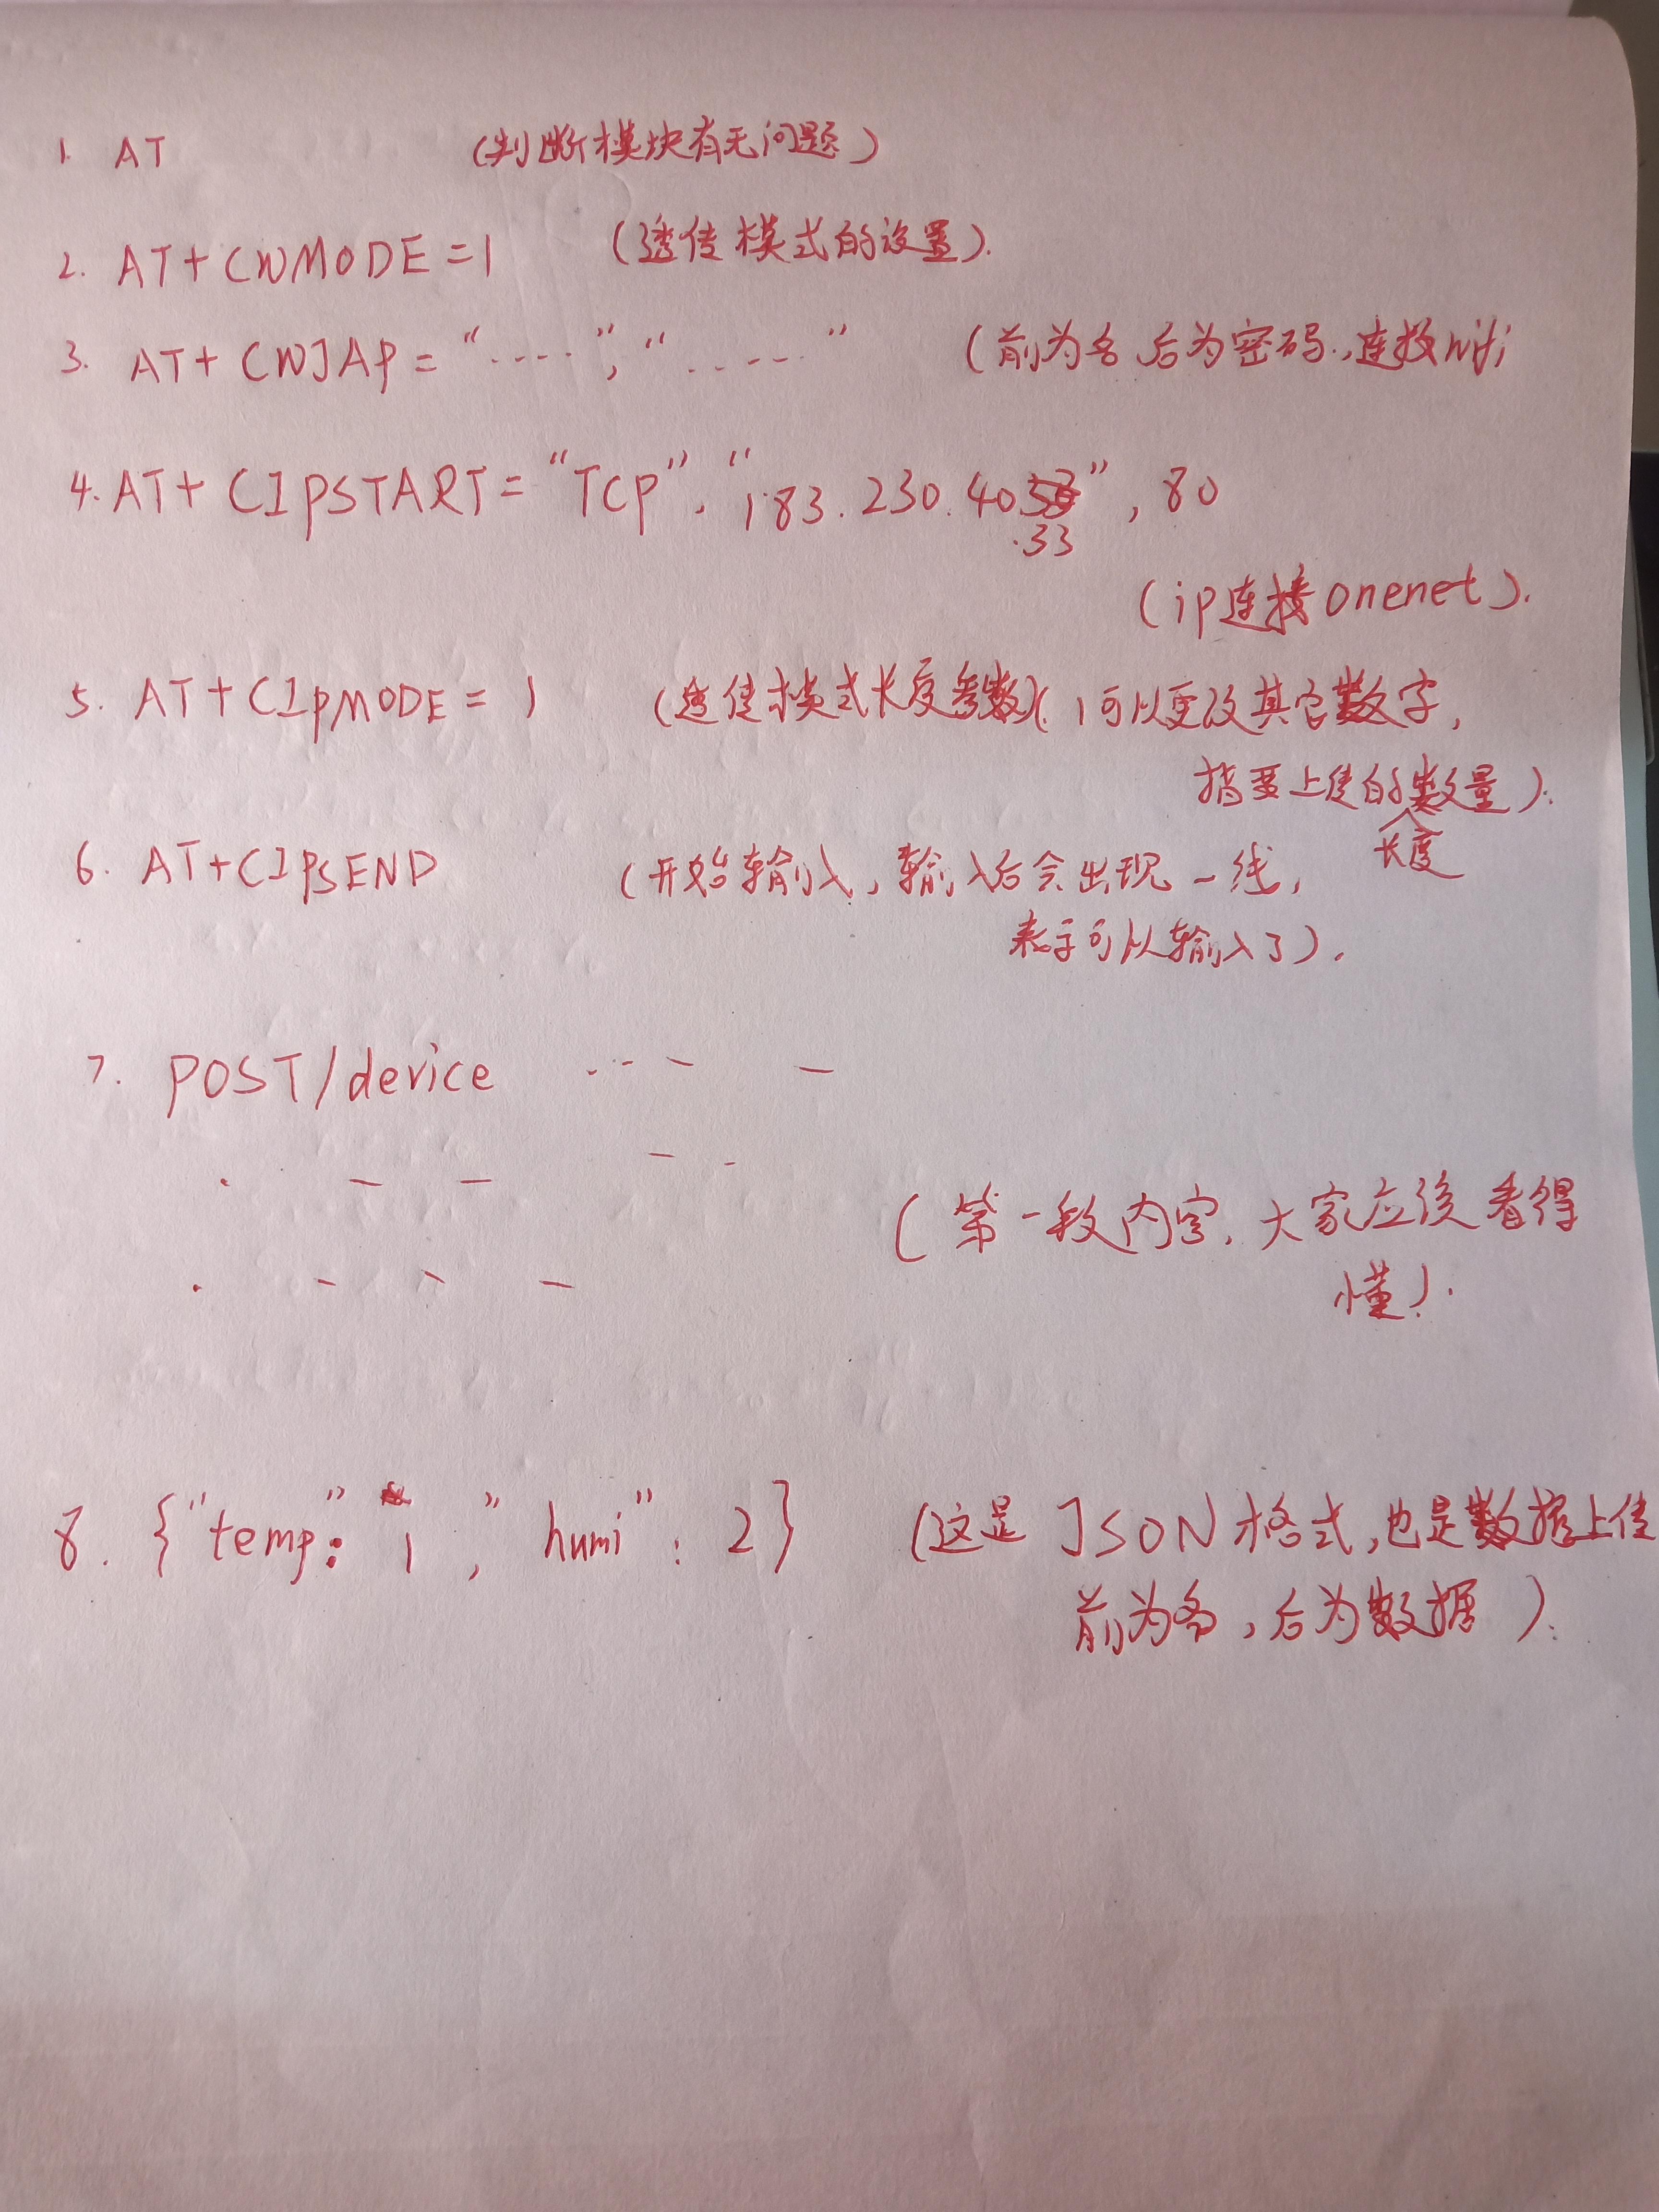 1. AT (判断模块有无问题)
2. AT+CWMODE=1 (透传模式的设置).
3. AT+CWJAP="....","..---" (前为名,后为密码.,连接wifi
4. AT+CIPSTART="TCP","183.230.40.33",80
(ip连接onenet).
5. AT+CIPMODE=1 (透传模式长度参数)(1可以更改其它数字,
指要上传的长度数量).
6. AT+CIPSEND (开始输入,输入后会出现一线,
表示可以输入了).
7. POST/device ... - -
. - - - -
(第一段内容,大家应该看得
. - - - 懂).
8. {"temp":1,"humi":2} (这是JSON格式,也是数据上传
前为名,后为数据).